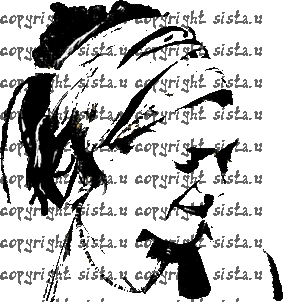 copyright sista.u copyright sista.u
copyright sista.u copyright sista.u
copyright sista.u copyright sista.u
copyright sista.u copyright sista.u
copyright sista.u copyright sista.u
copyright sista.u copyright sista.u
copyright sista.u copyright sista.u
copyright sista.u copyright sista.u
copyright sista.u copyright sista.u